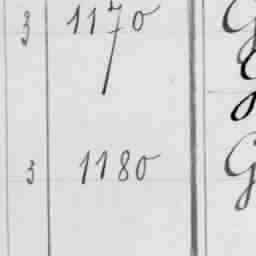 3 1170 G
3 1180 G